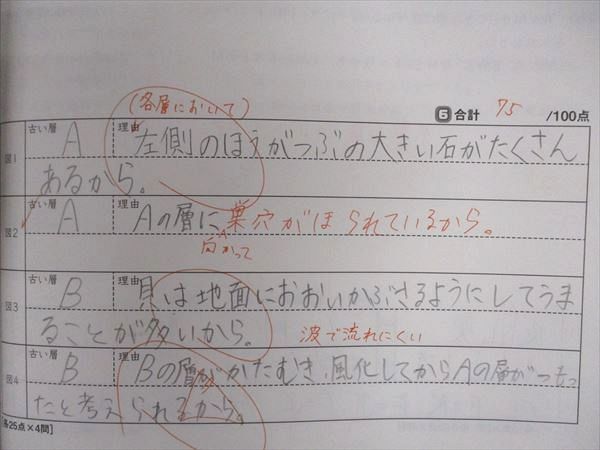 (各層において)
G 合計 75 /100点
図1 古い層 A 理由 左側のほうがつぶの大きい石がたくさん
あるから。
図2 古い層 A 理由 Aの層に巣穴がほられているから。
向かって
図3 古い層 B 理由 貝は地面におおいかぶさるようにしてうま
ることが多いから。 波で流れにくい
図4 古い層 B 理由 Bの層がかたむき、風化してからAの層がつもっ
たと考えられるから。
[各25点×4問]